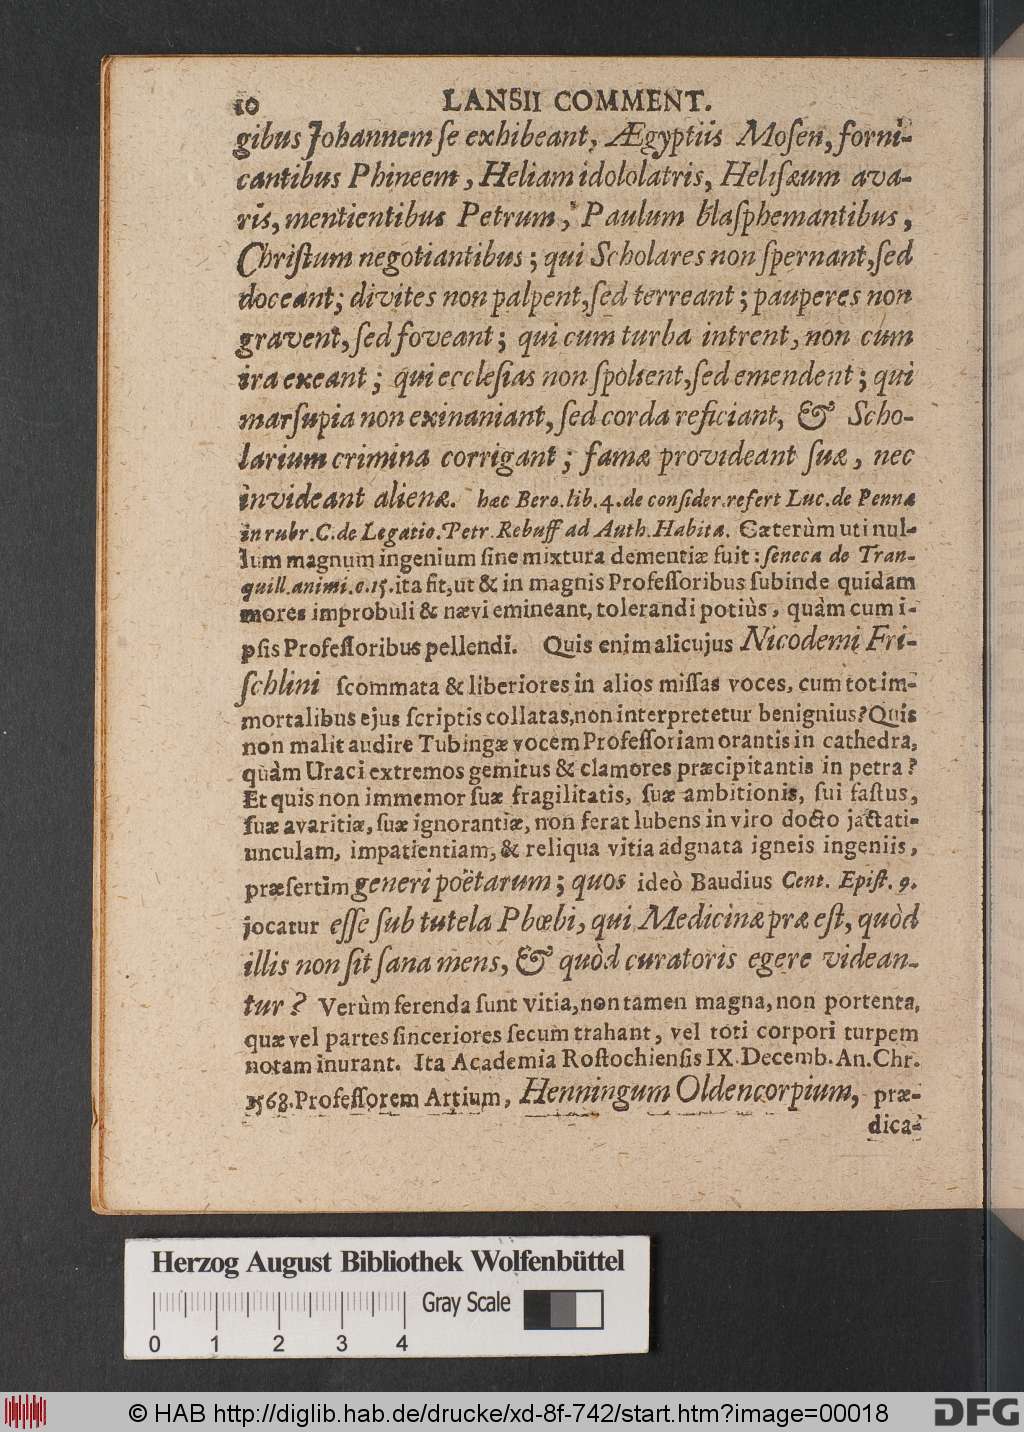 10 LANSII COMMENT.
gibus Johannem ſe exhibeant, Ægyptiis Moſen, forni-
cantibus Phineem, Heliam idololatris, Heliſæum ava-
ris, mentientibus Petrum, Paulum blaſphemantibus,
Chriſtum negotiantibus; qui Scholares non ſpernant, ſed
doceant; divites non palpent, ſed terreant; pauperes non
gravent, ſed foveant; qui cum turba intrent, non cum
ira exeant; qui eccleſias non ſpolient, ſed emendent; qui
marſupia non exinaniant, ſed corda reficiant, & Scho-
larium crimina corrigant; famæ provideant ſuæ, nec
invideant alienæ. hæc Bero. lib. 4. de conſider. refert Luc. de Penna
in rubr. C. de Legatio. Petr. Rebuff ad Auth. Habita. Cæterùm uti nul-
lum magnum ingenium ſine mixtura dementiæ fuit: ſeneca de Tran-
quill. animi. c. 15. ita fit, ut & in magnis Profeſſoribus ſubinde quidam
mores improbuli & nævi emineant, tolerandi potiùs, quàm cum i-
pſis Profeſſoribus pellendi. Quis enim alicujus Nicodemi Fri-
ſchlini ſcommata & liberiores in alios miſſas voces, cum tot im-
mortalibus ejus ſcriptis collatas, non interpretetur benignius? Quis
non malit audire Tubingæ vocem Profeſſoriam orantis in cathedra,
quàm Uraci extremos gemitus & clamores præcipitantis in petra?
Et quis non immemor ſuæ fragilitatis, ſuæ ambitionis, ſui faſtus,
ſuæ avaritiæ, ſuæ ignorantiæ, non ferat lubens in viro docto jactati-
unculam, impatientiam, & reliqua vitia adgnata igneis ingeniis,
præſertim generi poëtarum; quos ideò Baudius Cent. Epiſt. 9.
jocatur eſſe ſub tutela Phœbi, qui Medicinæ præ eſt, quòd
illis non ſit ſana mens, & quòd curatoris egere videan-
tur? Verùm ferenda ſunt vitia, non tamen magna, non portenta,
quæ vel partes ſinceriores ſecum trahant, vel toti corpori turpem
notam inurant. Ita Academia Roſtochienſis IX. Decemb. An. Chr.
1568. Profeſſorem Artium, Henningum Oldencorpium, præ-
dica-
Herzog August Bibliothek Wolfenbüttel
Gray Scale
0 1 2 3 4
© HAB http://diglib.hab.de/drucke/xd-8f-742/start.htm?image=00018
DFG